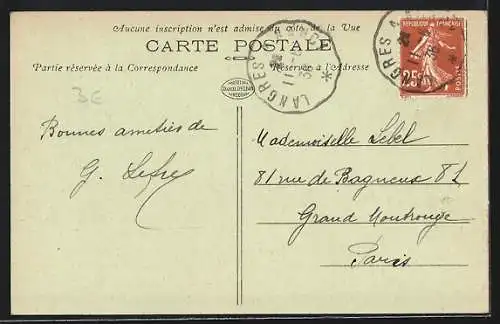 Aucune inscription n'est admise du côté de la Vue
CARTE POSTALE
Partie réservée à la Correspondance
Réservée à l'Adresse
LANGRES A
LANGRES A
RÉPUBLIQUE FRANÇAISE
25c
3E
Bonnes amitiés de
G.
Mademoiselle Lebel
81 rue de Bagneux 81
Grand Montrouge
Paris